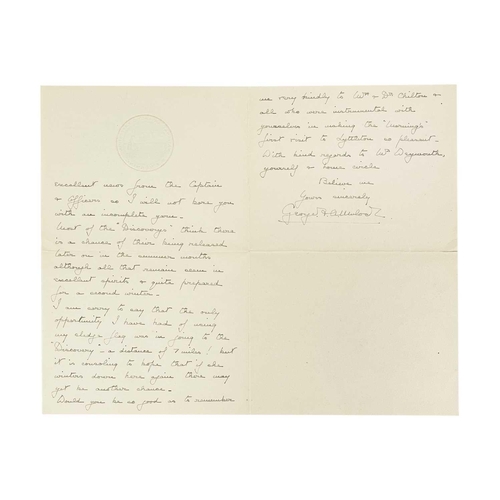 excellent news from the Captain
& Officers so I will not bore you
with an incomplete yarn.
Most of the "Discoverys" think there
is a chance of their being released
later on in the summer months
although all that remains seem in
excellent spirits & quite prepared
for a second winter.
I am sorry to say that the only
opportunity I have had of using
my sledge flag was in going to the
"Discovery" a distance of 7 miles! but
it is consoling to hope that if she
winters down here again there may
yet be another chance.
Would you be so good as to remember
me very kindly to Mrs & Dr Chilton &
all who were instrumental with
yourselves in making the "Morning's"
first visit to Lyttelton so pleasant.
With kind regards to Mrs
yourself &
Believe me
Yours sincerely
George F A Mulock